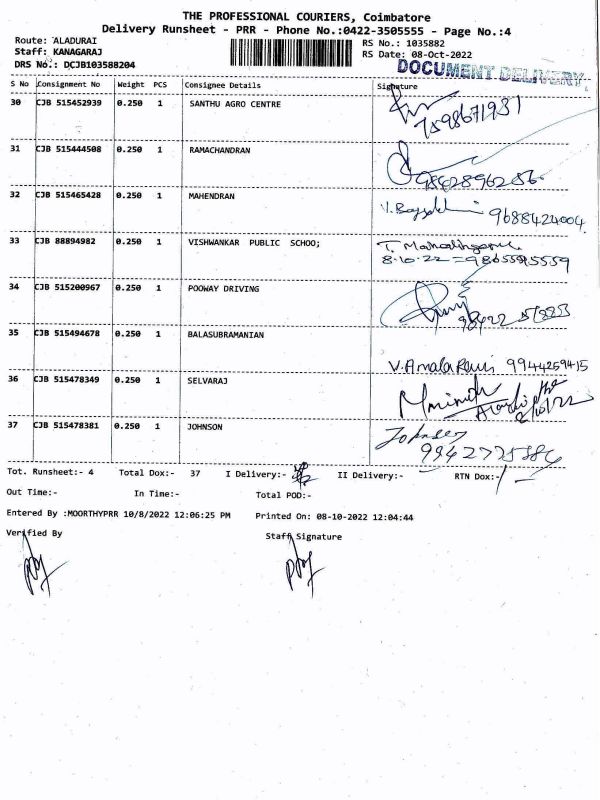 THE PROFESSIONAL COURIERS, Coimbatore
Delivery Runsheet - PRR - Phone No.:0422-3505555 - Page No.:4
Route: ALADURAI
RS No.: 1035882
Staff: KANAGARAJ
RS Date: 08-Oct-2022
DRS No.: DCJB103588204
DOCUMENT DELIVERY.
S No Consignment No Weight PCS Consignee Details Signature
30 CJB 515452939 0.250 1 SANTHU AGRO CENTRE
7598671931
31 CJB 515444508 0.250 1 RAMACHANDRAN
32 CJB 515465428 0.250 1 MAHENDRAN
9688424004.
33 CJB 88894982 0.250 1 VISHWANKAR PUBLIC SCHOO;
8.10.22 = 9865595559
34 CJB 515200967 0.250 1 POOWAY DRIVING
35 CJB 515494678 0.250 1 BALASUBRAMANIAN
V. Amala Rani 9944259415
36 CJB 515478349 0.250 1 SELVARAJ
37 CJB 515478381 0.250 1 JOHNSON
Johnson
9942775886
Tot. Runsheet:- 4 Total Dox:- 37 I Delivery:- II Delivery:- RTN Dox:-
Out Time:- In Time:- Total POD:-
Entered By :MOORTHYPRR 10/8/2022 12:06:25 PM Printed On: 08-10-2022 12:04:44
Verified By Staff Signature